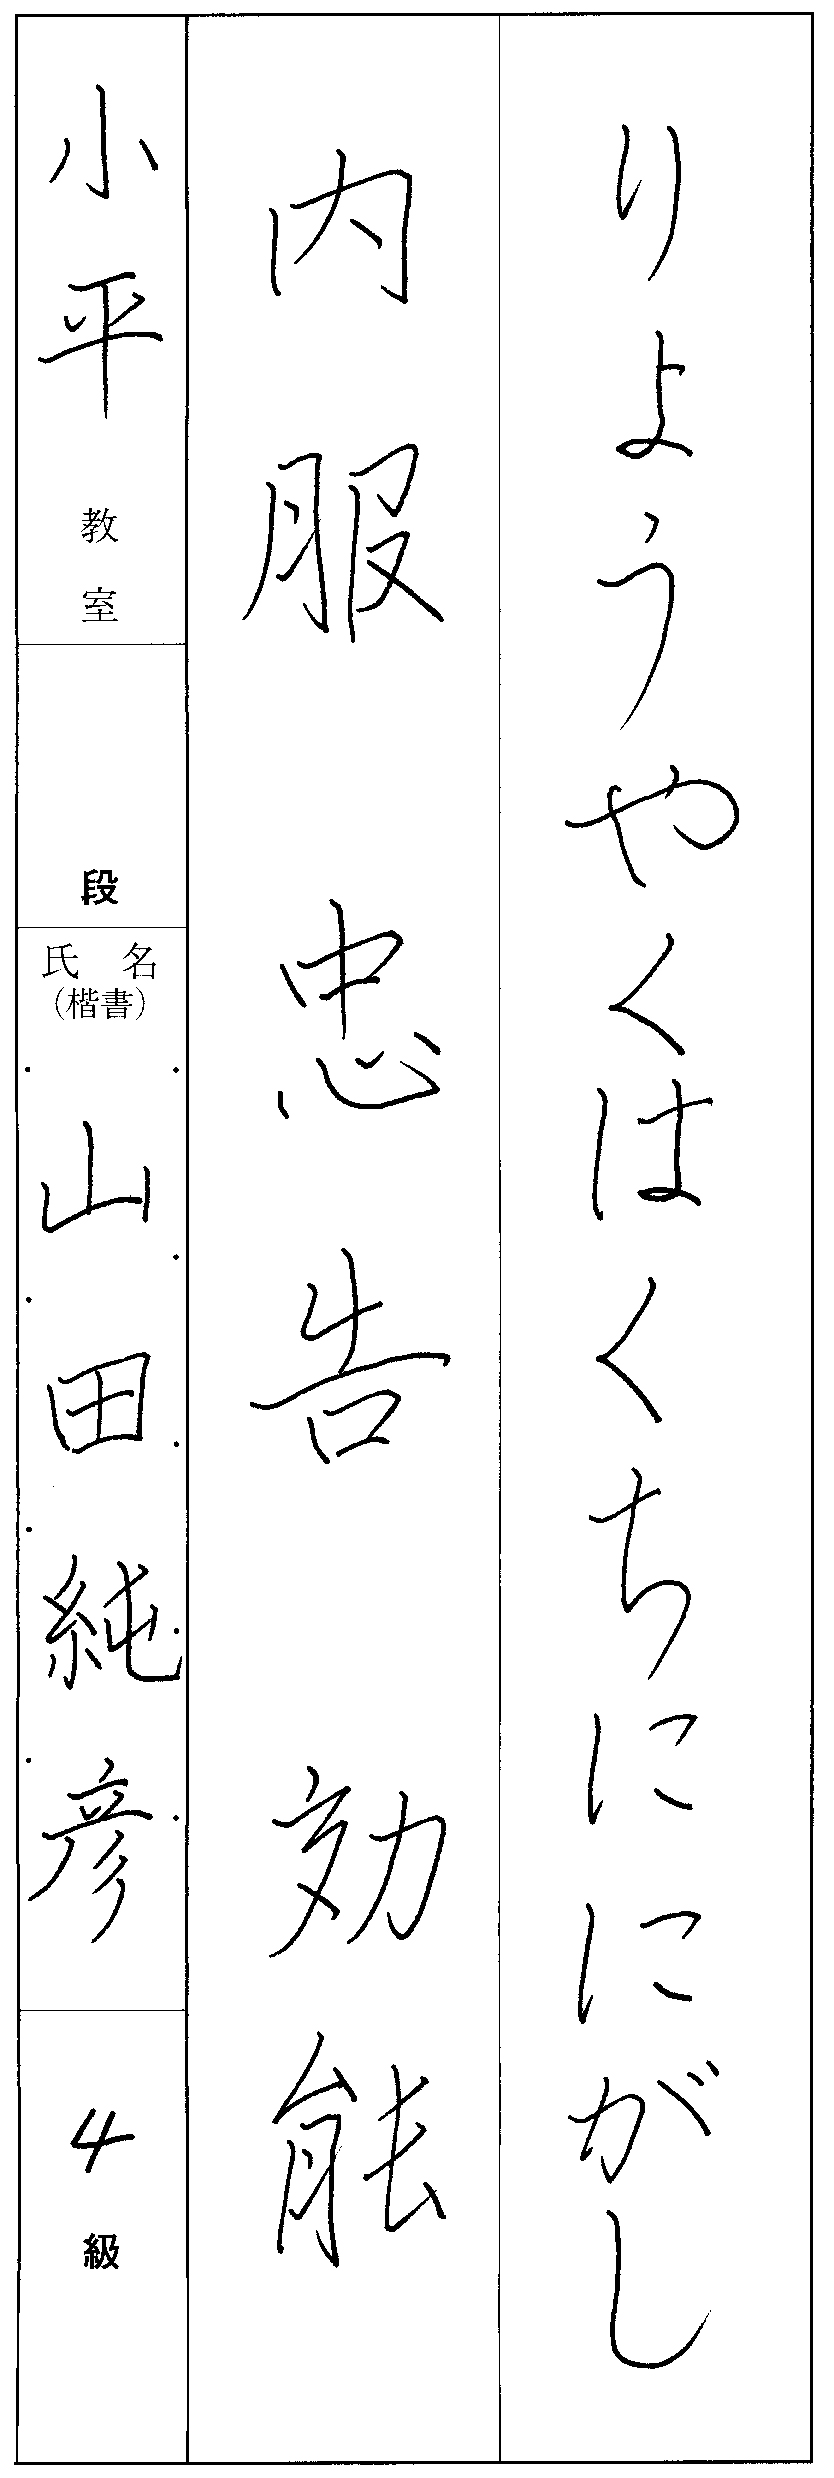 りょうやくはくちににがし
内服 忠告 効能
小平教室
段
氏名
(楷書)
山田純彦
4級